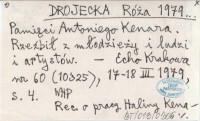 DROJECKA Róża 1979...
Pamięci Antoniego Kenara.
Rzeźbił z młodzieży i ludzi
i artystów. - Echo Krakowa
nr 60 (10325), 17-18 III 1979,
s. 4. WHP
Rec. o pracy Haliny Kena-